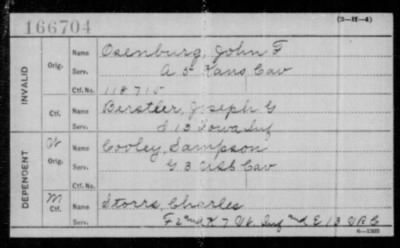 166704
(3-H-4)
INVALID
Orig.
Name Osenburg, John F
Serv. A 5 Kans Cav
Ctf. No. 118715
Ctf.
Name Berstler, Joseph G
Serv. I 13 Iowa Inf
DEPENDENT
W
Orig.
Name Cooley, Sampson
Serv. G 3 Cav
M
Ctf.
Name Storrs, Charles
Serv. F 2nd K 7 Vt. Inf and E 13 VRC